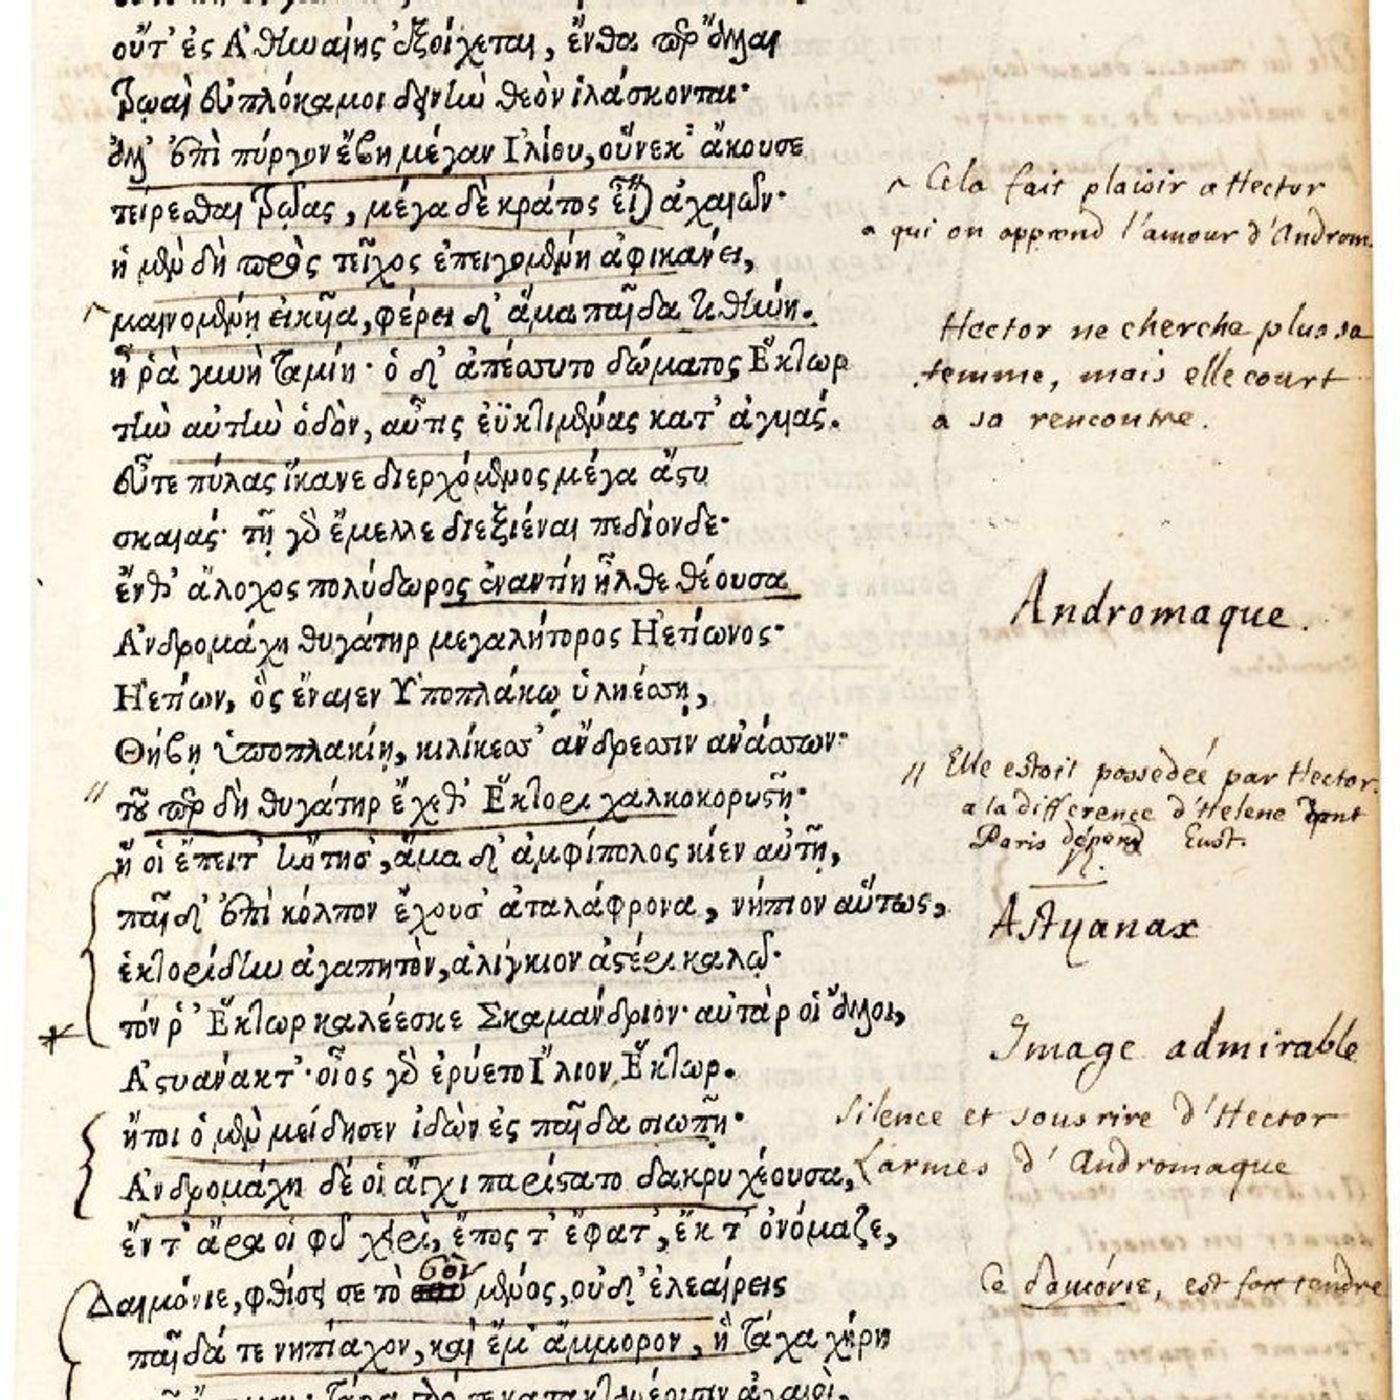 οὔτ' ἐς Ἀθηναίης ἐξοίχεται, ἔνθα περ ἄλλαι
Τρῳαὶ ἐϋπλόκαμοι δεινὴν θεὸν ἱλάσκονται·
ἀλλ' ἐπὶ πύργον ἔβη μέγαν Ἰλίου, οὕνεκ' ἄκουσε
τείρεσθαι Τρῶας, μέγα δὲ κράτος εἶναι ἀχαιῶν·
ἡ μὲν δὴ πρὸς τεῖχος ἐπειγομένη ἀφικάνει,
μαινομένῃ εἰκυῖα, φέρει δ' ἅμα παῖδα τιθήνη.
ἦ ῥὰ γυνὴ ταμίη· ὁ δ' ἀπέσσυτο δώματος Ἕκτωρ
τὴν αὐτὴν ὁδὸν, αὖτις ἐϋκτιμένας κατ' ἀγυιάς.
εὖτε πύλας ἵκανε διερχόμενος μέγα ἄστυ
σκαιάς· τῇ γὰρ ἔμελλε διεξιέναι πεδίονδε·
ἔνθ' ἄλοχος πολύδωρος ἐναντίη ἦλθε θέουσα
Ἀνδρομάχη θυγάτηρ μεγαλήτορος Ἠετίωνος·
Ἠετίων, ὃς ἔναιεν Ὑποπλάκῳ ὑληέσσῃ,
Θήβῃ ὑποπλακίῃ, κιλίκεσσ' ἄνδρεσσιν ἀνάσσων·
τοῦ περ δὴ θυγάτηρ ἔχεθ' Ἕκτορι χαλκοκορυστῇ·
ἥ οἱ ἔπειτ' ἤντησ', ἅμα δ' ἀμφίπολος κίεν αὐτῇ,
παῖδ' ἐπὶ κόλπον ἔχουσ' ἀταλάφρονα, νήπιον αὔτως,
ἑκτορίδην ἀγαπητὸν, ἀλίγκιον ἀστέρι καλῷ·
τόν ῥ' Ἕκτωρ καλέεσκε Σκαμάνδριον· αὐτὰρ οἱ ἄλλοι,
Ἀστυάνακτ'· οἶος γὰρ ἐρύετο Ἴλιον Ἕκτωρ.
ἤτοι ὁ μὲν μείδησεν ἰδὼν ἐς παῖδα σιωπῇ·
Ἀνδρομάχη δέ οἱ ἄγχι παρίστατο δακρυχέουσα,
ἔν τ' ἄρα οἱ φῦ χειρὶ, ἔπος τ' ἔφατ', ἔκ τ' ὀνόμαζε,
Δαιμόνιε, φθίσει σε τὸ σὸν μένος, οὐδ' ἐλεαίρεις
παῖδά τε νηπίαχον, καὶ ἔμ' ἄμμορον, ἣ τάχα χήρη
Cela fait plaisir a Hector
a qui on apprend l'amour d'Androm.
Hector ne cherche plus sa
femme, mais elle court
a sa rencontre.
Andromaque.
// Elle estoit possedeé par Hector.
a la difference d'Helene dont
Paris depend Eust.
Astyanax
Image admirable
Silence et sousrire d'Hector
Larmes d'Andromaque
Ce δαιμόνιε, est fort tendre